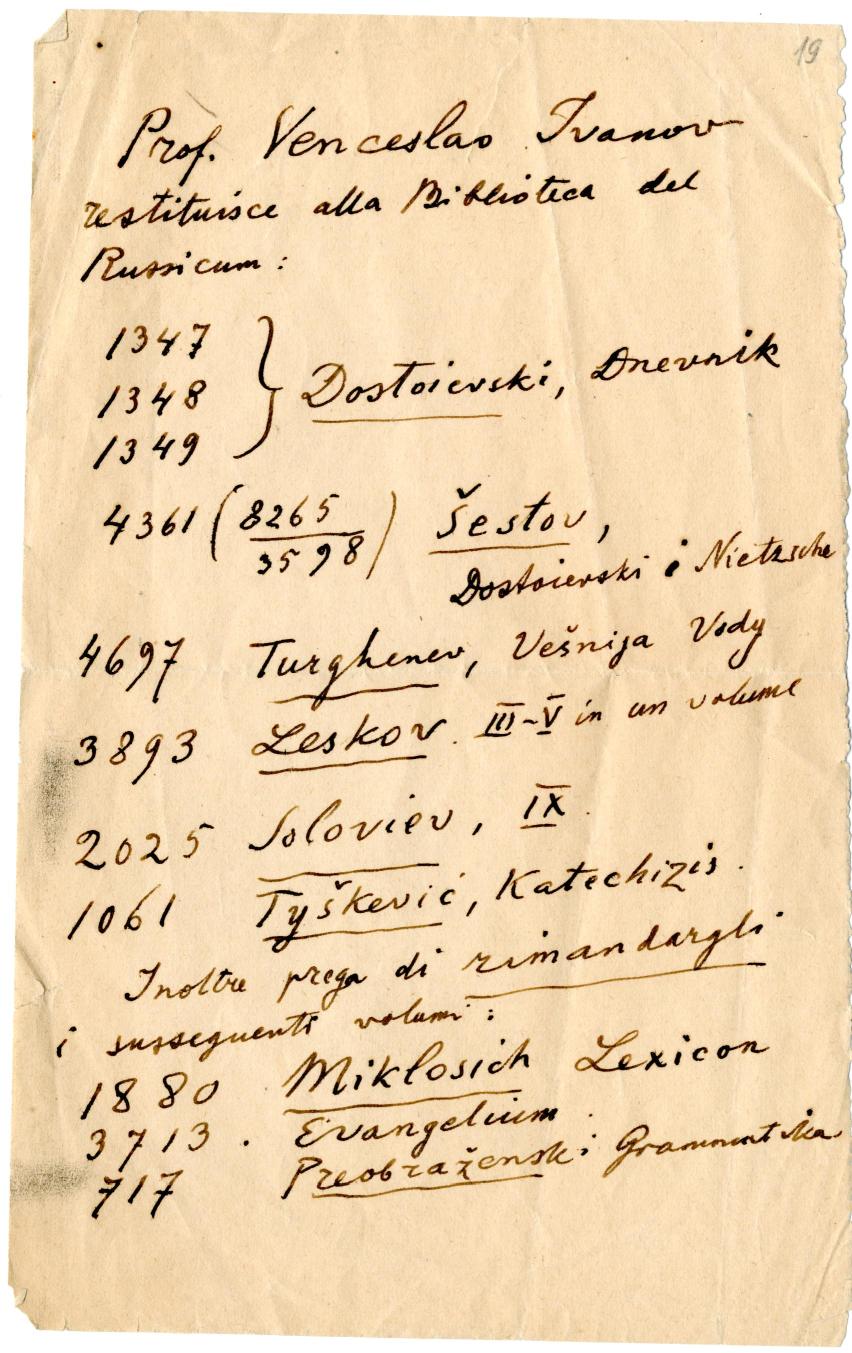 19
Prof. Venceslao Ivanov
restituisce alla Biblioteca del
Russicum:
1347
1348 } Dostoievski, Dnevnik
1349
4361 (8265/3598) Šestov,
Dostoievski i Nietzsche
4697 Turghenev, Vešnija Vody
3893 Leskov. III-V in un volume
2025 Soloviev, IX.
1061 Tyškević, Katechizis.
Inoltre prega di rimandargli
i susseguenti volumi:
1880 Miklosich Lexicon
3713. Evangelium.
717 Preobraženski Grammatika.